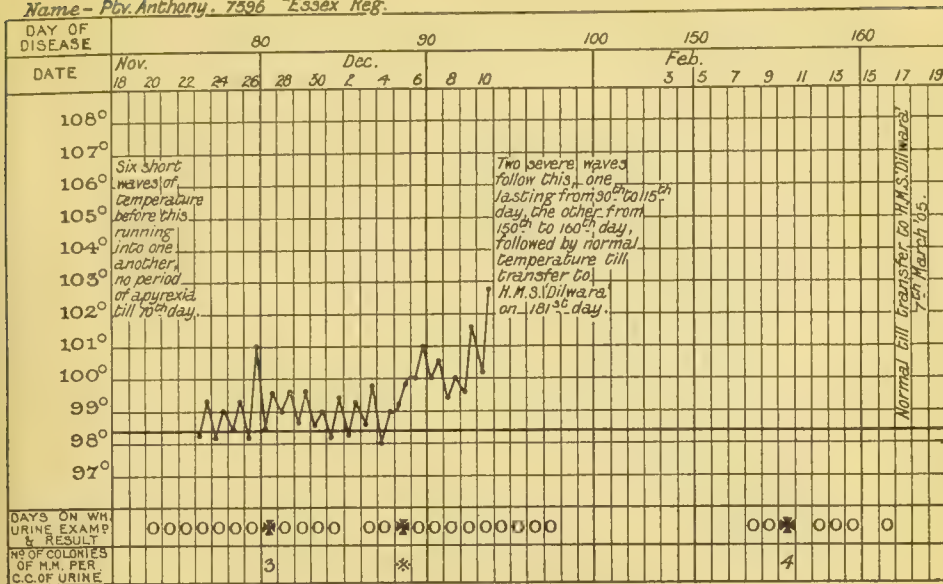 Name - Ptv. Anthony. 7596 Essex Reg.
DAY OF DISEASE 80 90 100 150 160
DATE Nov. Dec. Feb.
18 20 22 24 26 28 30 2 4 6 8 10 3 5 7 9 11 13 15 17 19
108°
107°
106°
105°
104°
103°
102°
101°
100°
99°
98°
97°
Six short
waves of
temperature
before this
running
into one
another,
no period
of apyrexia
till 70th day.
Two severe waves
follow this, one
lasting from 90th to 115th
day, the other from
150th to 160th day,
followed by normal
temperature till
transfer to
H.M.S. 'Dilwara'
on 181st day.
Normal till transfer to H.M.S. 'Dilwara'
7th March '05.
DAYS ON WH.
URINE EXAMD
& RESULT
OOOOOOO✠OOOO OO✠OOOOOOOOO OO✠ OOO O
NO OF COLONIES
OF M.M. PER
C.C. OF URINE
3 ※ 4